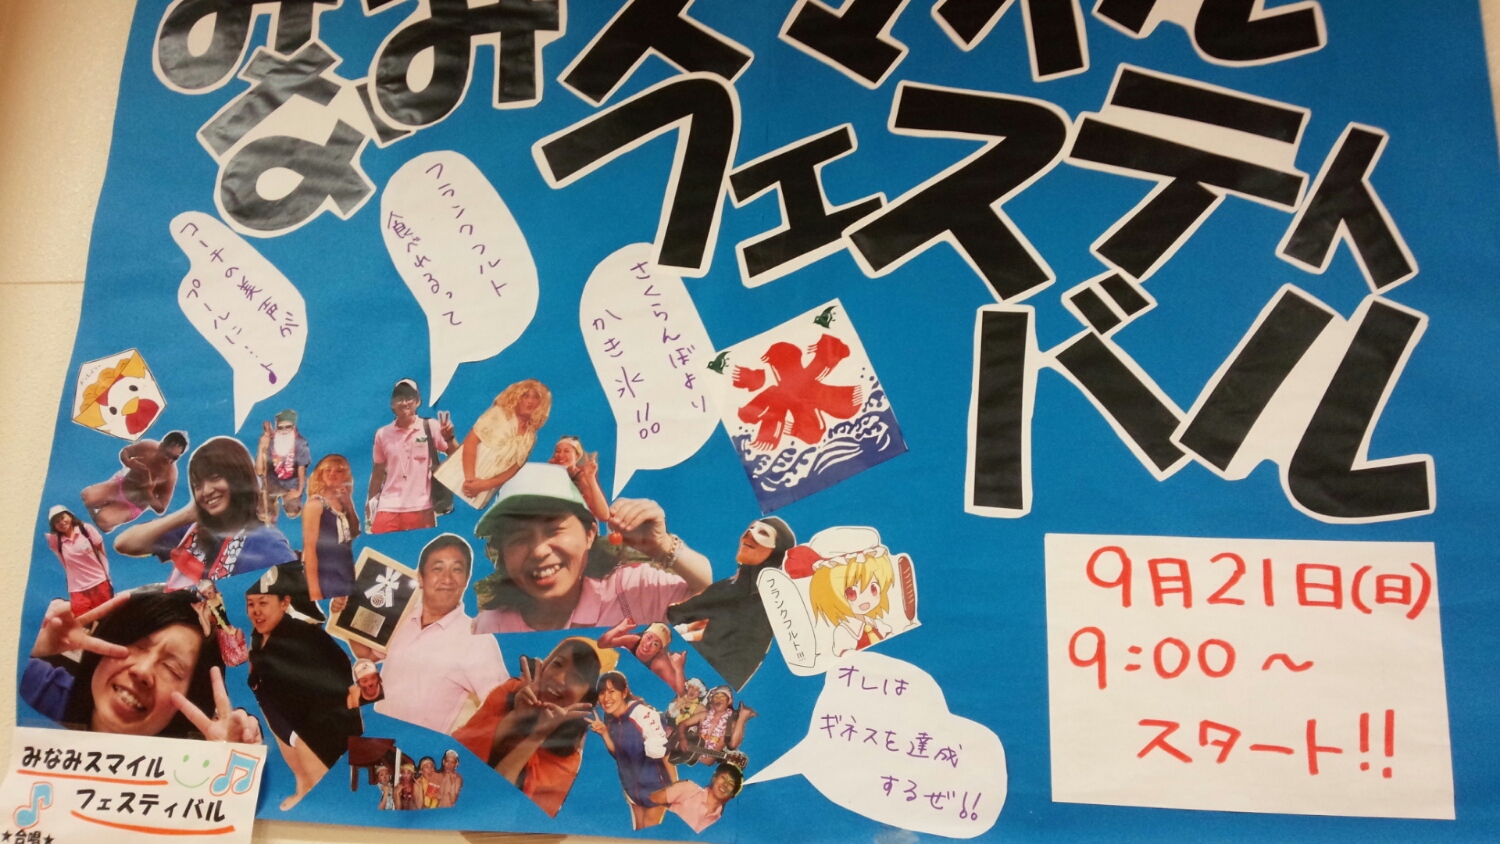 みなみスマイル
フェスティバル
コーチの美声が
プールに…♪
フランクフルト
食べれるって
さくらんぼより
かき氷!!
氷
フランクフルト!!!
オレは
ギネスを達成
するぜ!!
9月21日(日)
9:00～
スタート!!
みなみスマイル
フェスティバル
★合唱★